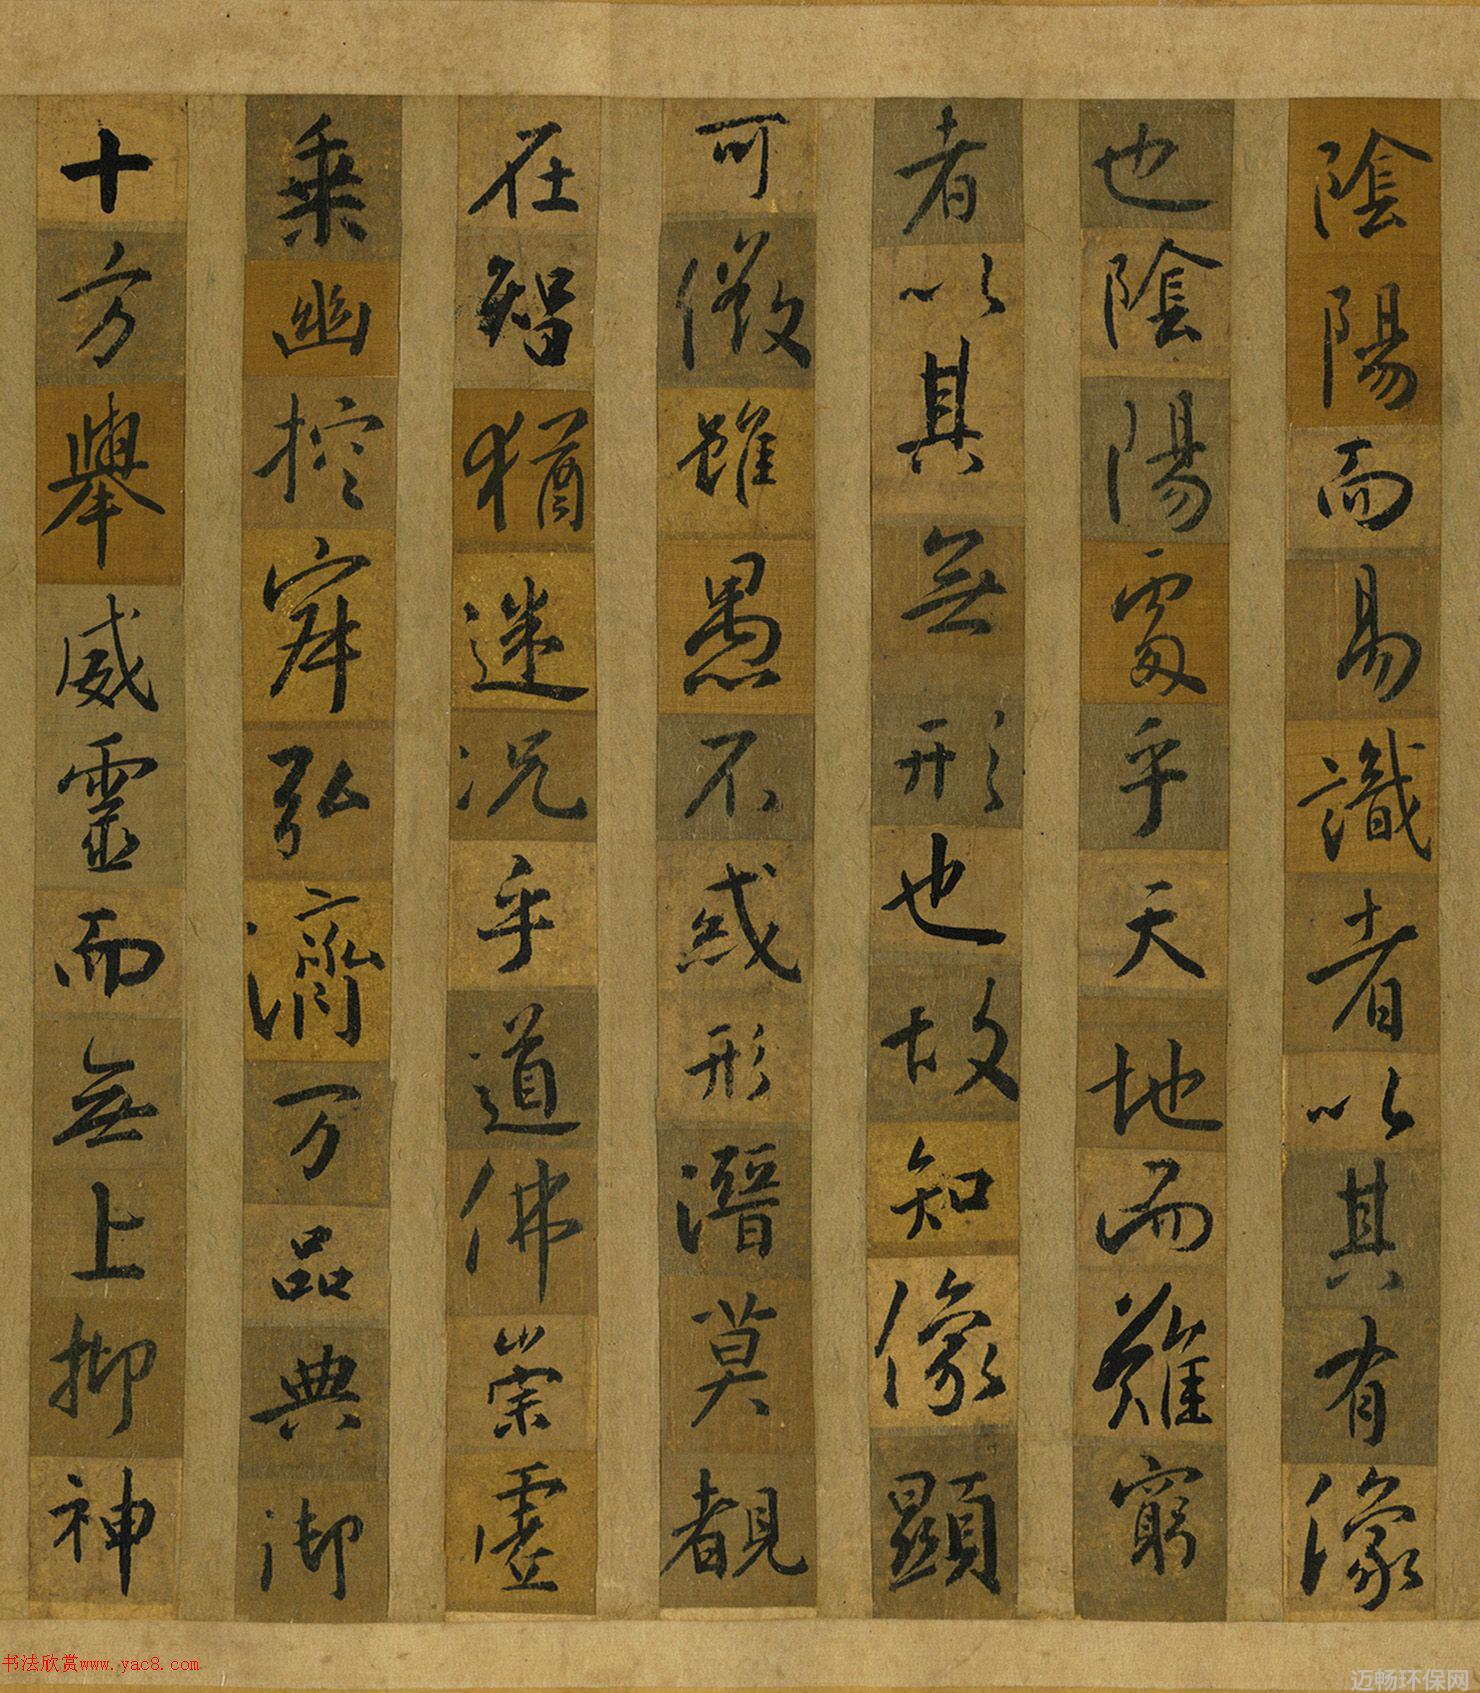 陰陽而易識者以其有像
也陰陽處乎天地而難窮
者以其無形也故知像顯
可徵雖愚不惑形潛莫覩
在智猶迷況乎道佛崇虛
乗幽控寂弘濟万品典御
十方舉威靈而無上抑神
书法欣赏www.yac8.com
迈畅环保网